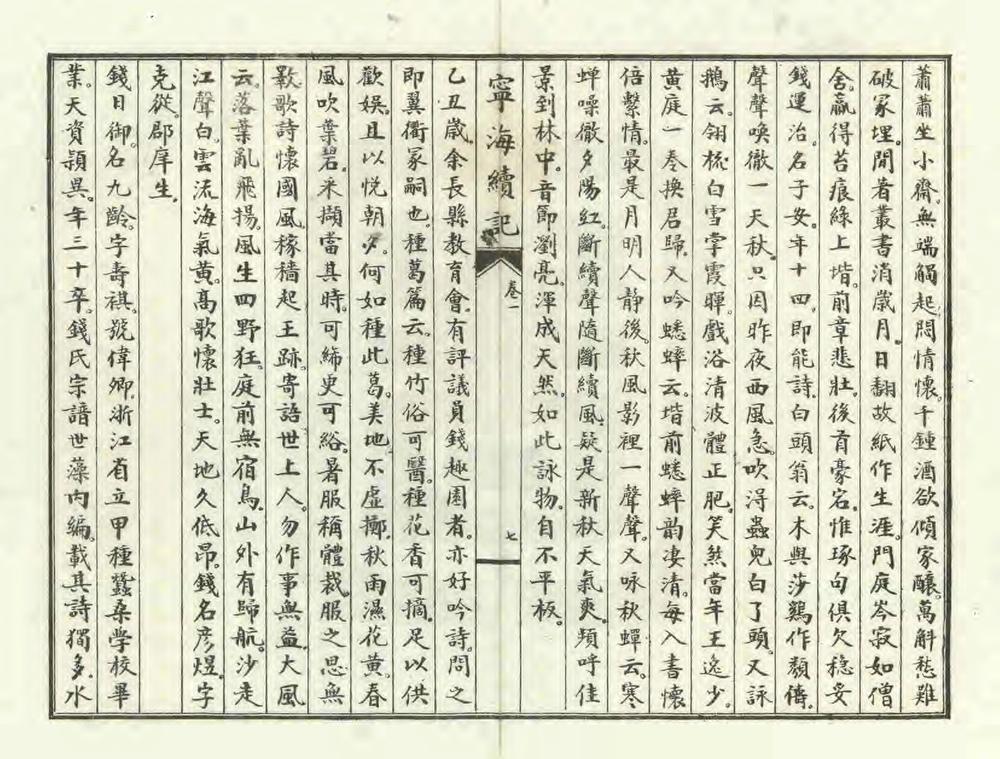 蕭蕭坐小齋。無端觸起悶情懷。千鍾酒欲傾家釀。萬斛愁難
破冢埋。閒看叢書消歲月。日翻故紙作生涯。門庭岑寂如僧
舍。贏得苔痕綠上堦。前章悲壯。後首豪宕。惟琢句俱欠穩妥
錢運治。名子安。年十四。即能詩。白頭翁云。木與莎鷄作頮儔。
聲聲喚徹一天秋。只因昨夜西風急。吹得蟲兒白了頭。又詠
鵝云。翎梳白雪掌霞暉。戲浴清波體正肥。笑煞當年王逸少。
黃庭一卷換君歸。又吟蟋蟀云。堦前蟋蟀韵凄清。每入書懷
倍繫情。最是月明人靜後。秋風影裡一聲聲。又咏秋蟬云。寒
蟬噪徹夕陽紅。斷續聲隨斷續風。疑是新秋天氣爽。頻呼佳
景到林中。音節瀏亮。渾成天然。如此詠物。自不平板。
寧海續記
卷一
七
乙丑歲。余長縣教育會。有評議員錢趣園者。亦好吟詩。問之
即翼衢冢嗣也。種葛篇云。種竹俗可醫。種花香可摘。足以供
歡娛。且以悅朝夕。何如種此葛。美地不虛擲。秋雨濕花黃。春
風吹葉碧。采擷當其時。可絺更可綌。暑服稱體裁。服之思無
斁。歌詩懷國風。稼穡起王跡。寄語世上人。勿作事無益。大風
云。落葉亂飛揚。風生四野狂。庭前無宿鳥。山外有歸航。沙走
江聲白。雲流海氣黃。高歌懷壯士。天地久低昂。錢名彦煜。字
克從。郡庠生。
錢日御。名九齡。字壽祺。號偉卿。浙江省立甲種蠶桑學校畢
業。天資穎異。年三十卒。錢氏宗譜世藻內編。載其詩獨多。水